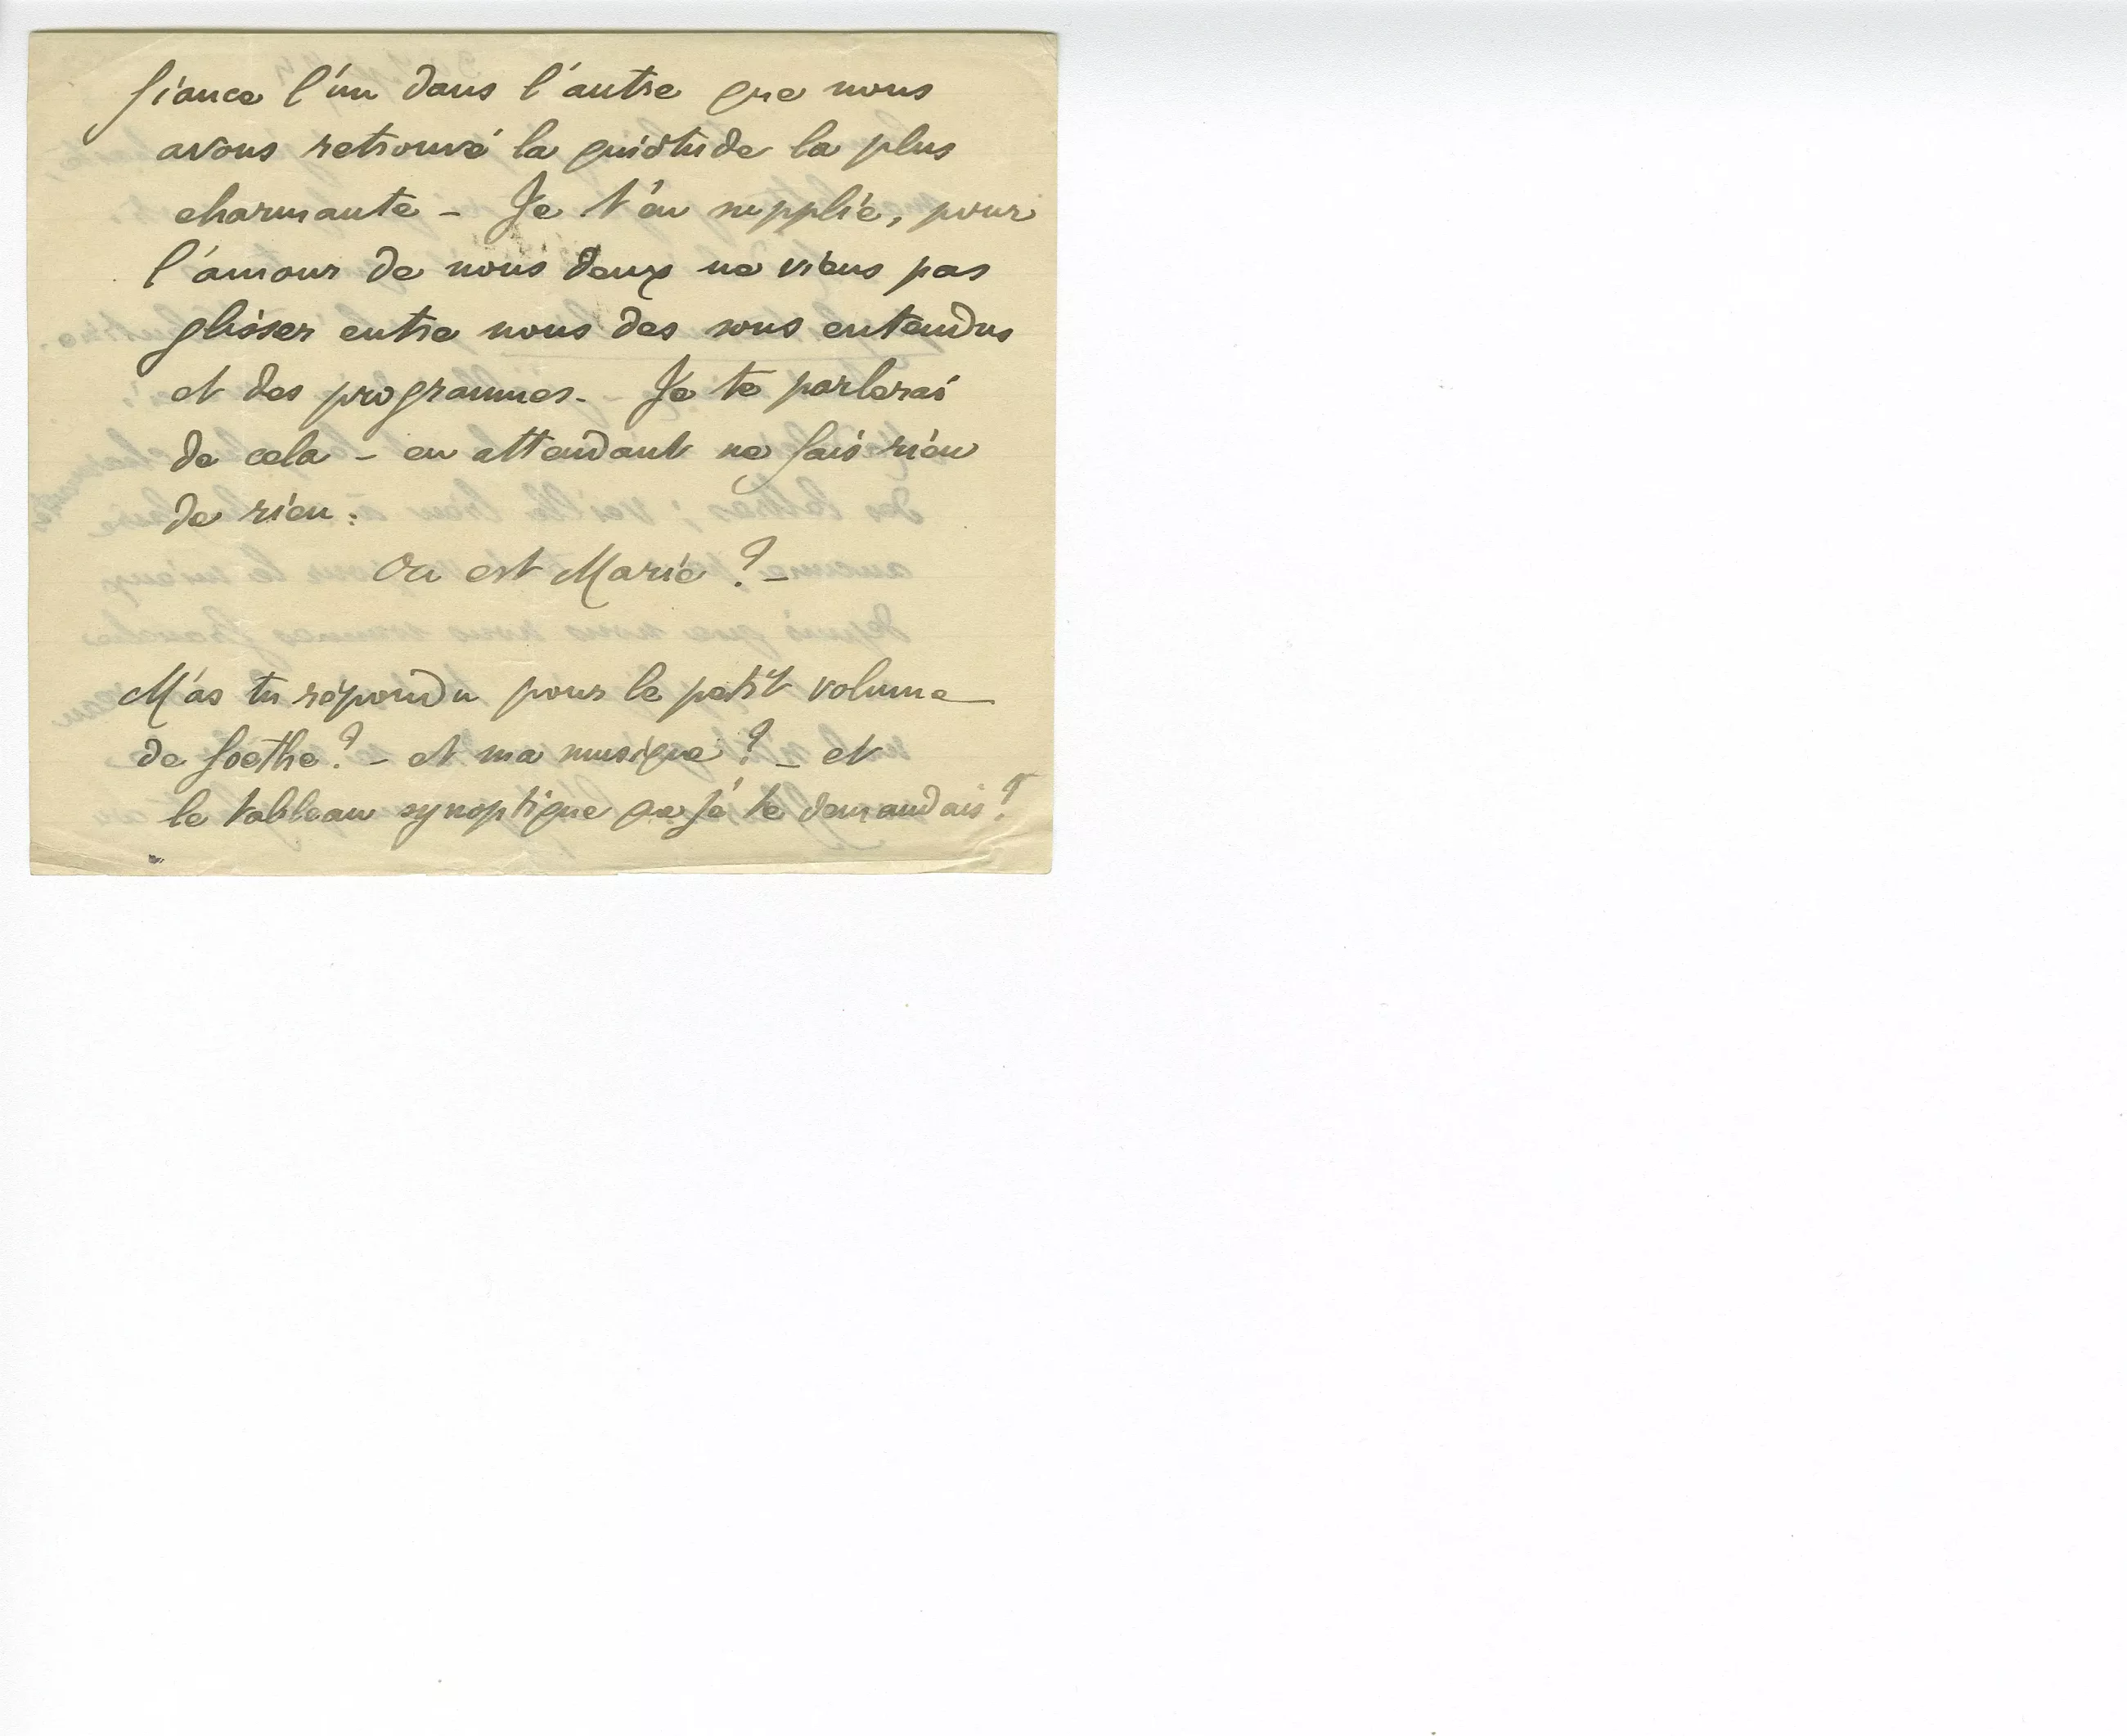 fiance l'un dans l'autre que nous
avons retrouvé la quiétude la plus
charmante - Je t'en supplie, pour
l'amour de nous deux ne viens pas
glisser entre nous des sous entendus
et des programmes - Je te parlerai
de cela - en attendant ne fais rien
de rien.
Où est Marie ? -
M'as tu répondu pour le petit volume
de Goethe ? - et ma musique ? - et
le tableau synoptique que je te demandais ?